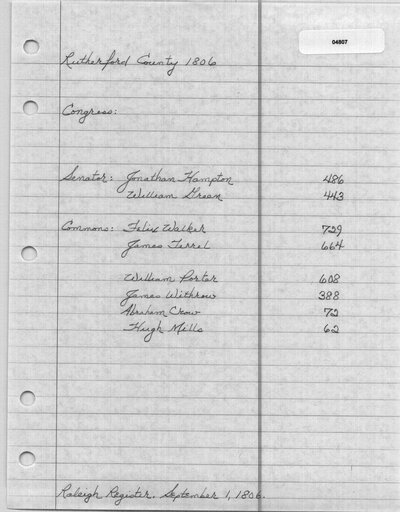 04807
Rutherford County 1806
Congress:
Senator: Jonathan Hampton 486
William Green 443
Commons: Felix Walker 729
James Terrel 664
William Porter 608
James Withrow 388
Abraham Crow 72
Hugh Mills 62
Raleigh Register. September 1, 1806.